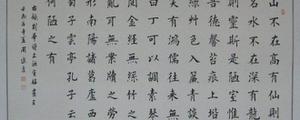 山不在高有仙則
名水不在深有龍
則靈斯是陋室惟
吾德馨苔痕上階
綠草色入簾青談
笑有鴻儒往來無
白丁可以調素琴
閱金經無絲竹之
亂耳無案牘之勞
形南陽諸葛廬西
蜀子雲亭孔子云
何陋之有